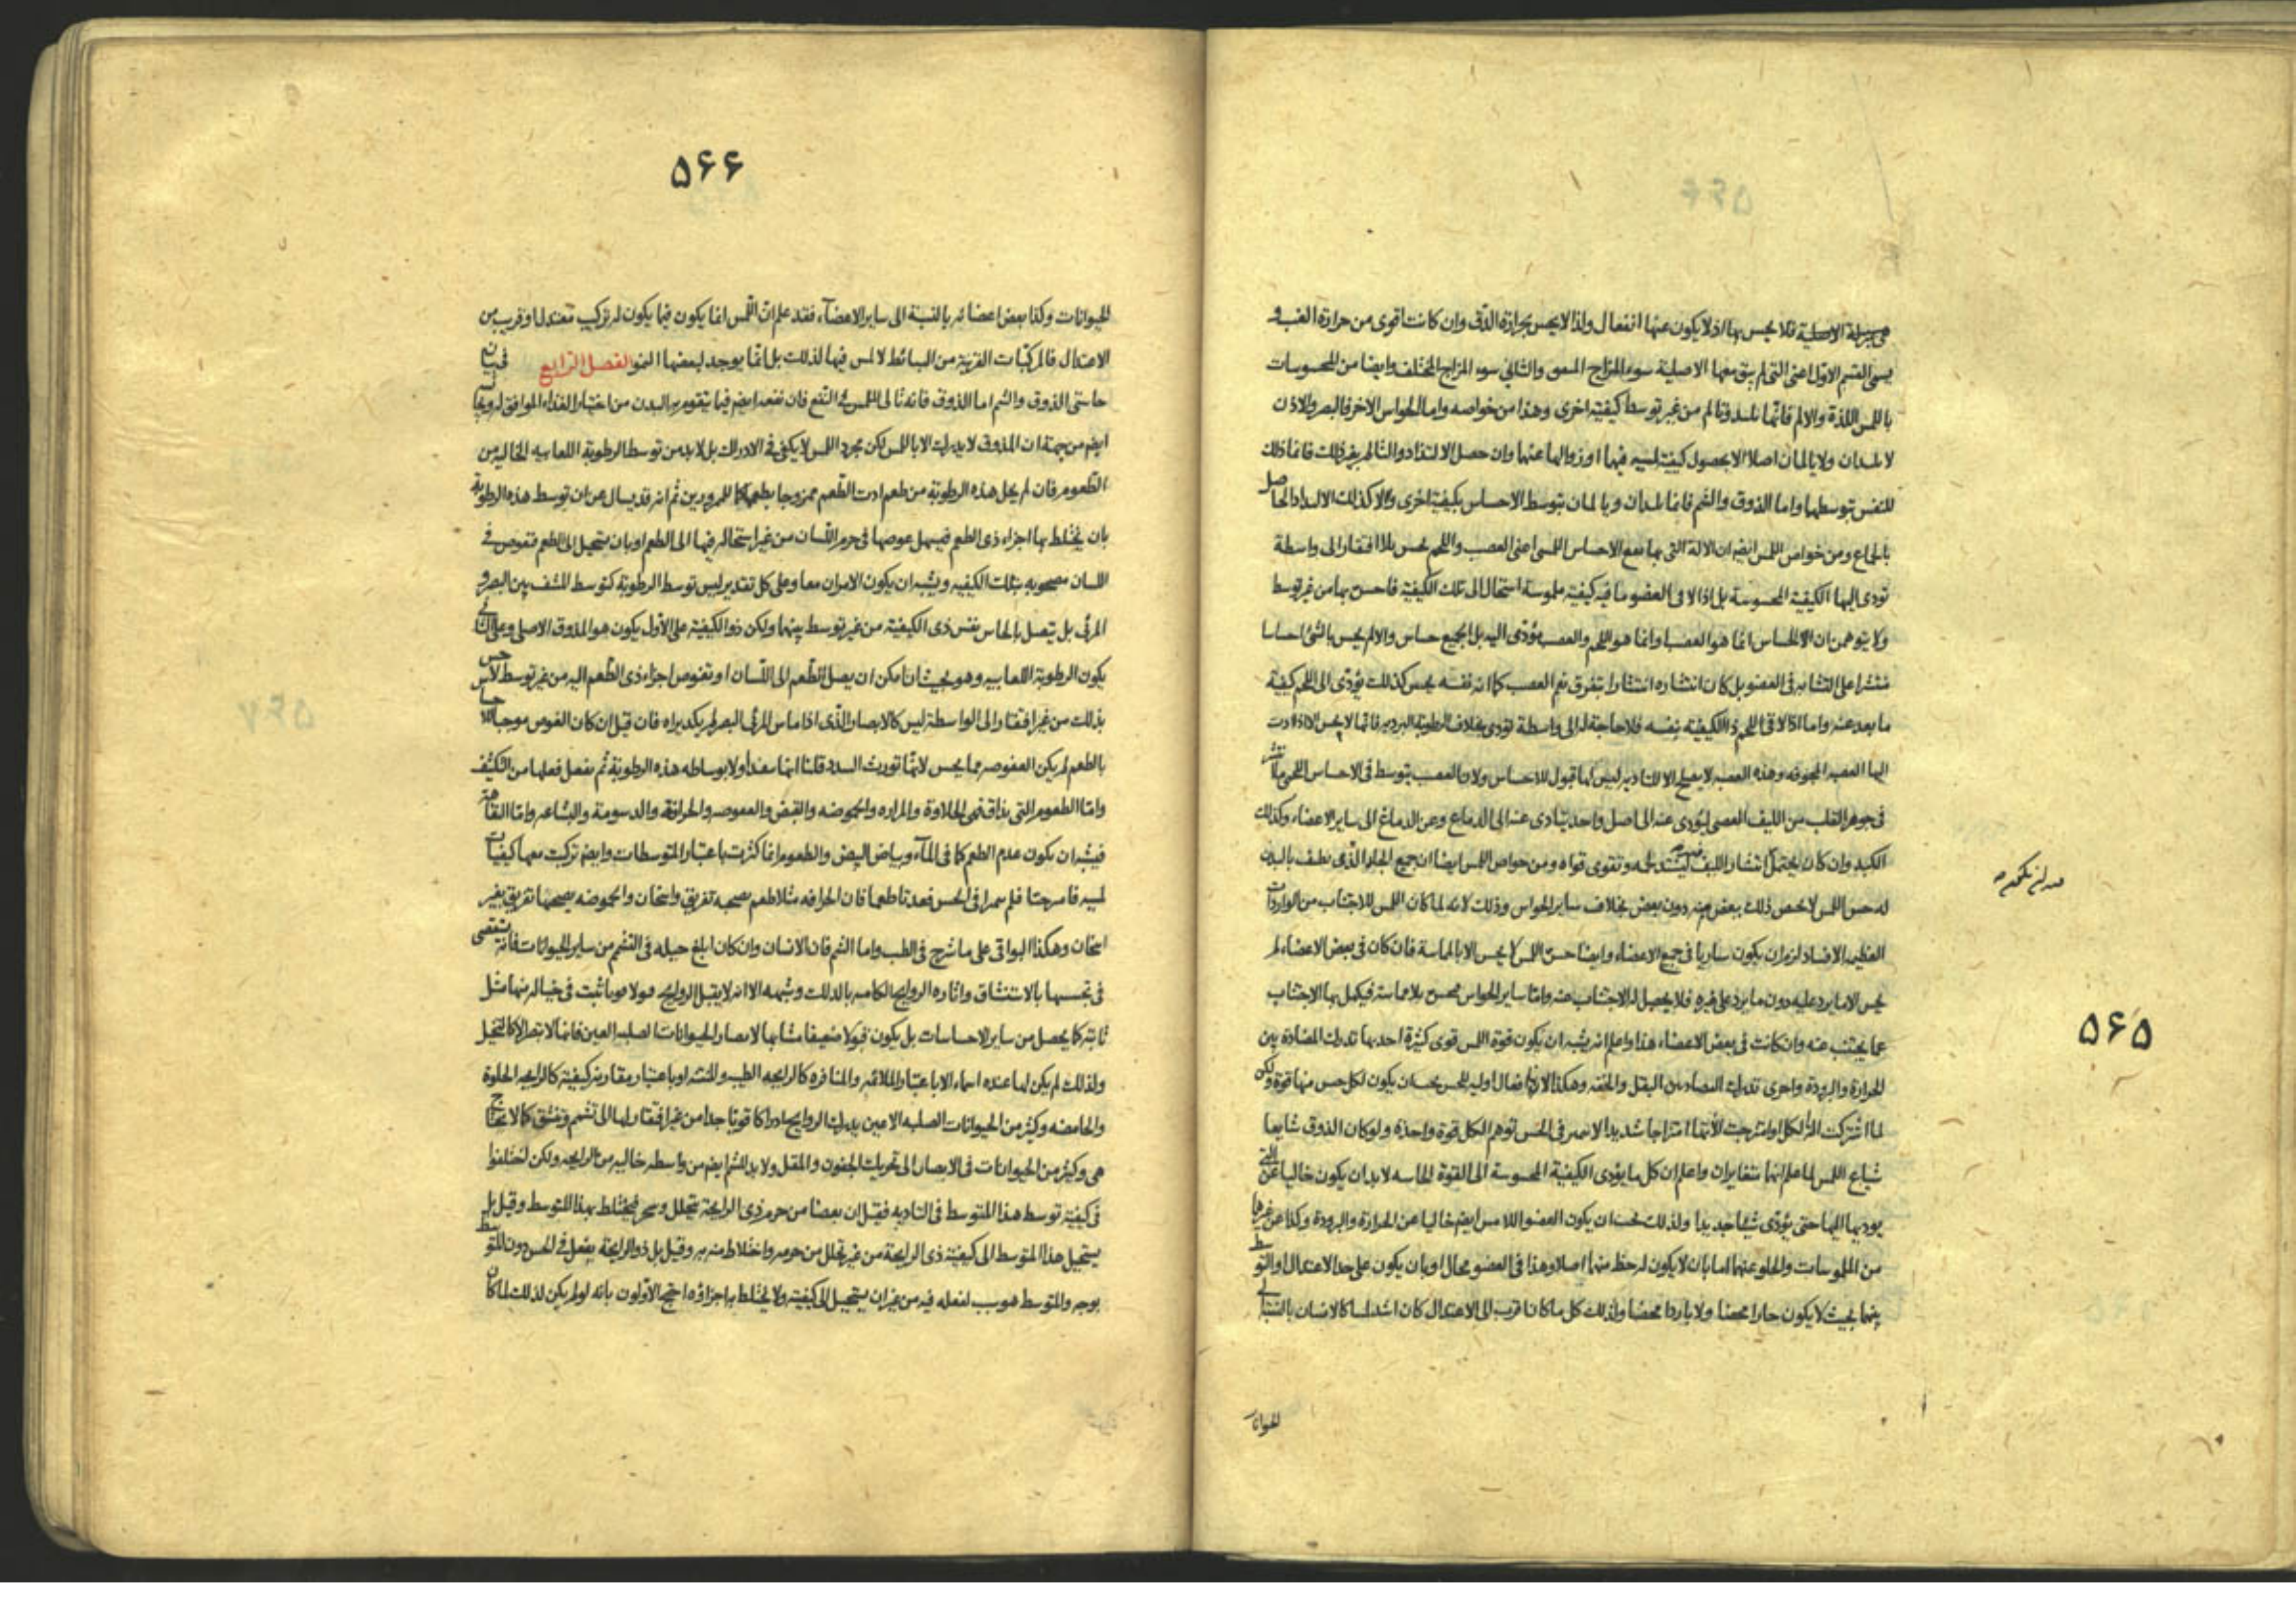 فلا يحس بها اذ لا يكون عنها انفعال ولذا لا يحس بحرارة الدق وان كانت اقوى من حرارة الغب و
يسمى القسم الاول اعنى التى لم يبق معها الاصلية سوء المزاج المتفق والثانى سوء المزاج المختلف وايضا من المحسوسات
باللمس اللذة والالم فانها تلتذ وتالم من غير توسط كيفية اخرى وهذا من خواصه واما الحواس الاخر فالبصر والاذن
لا يلتذان ولا يالمان اصلا الا بحصول كيفية لمسيه فيها او زوالها عنها وان حصل الالتذاذ والتالم بغير ذلك فانما ذلك
للنفس بتوسطهما واما الذوق والشم فانما يلتذان ويالمان بتوسط الاحساس بكيفية اخرى والا كذلك الالتذاذ الحاصل
بالجماع ومن خواص اللمس ايضا ان الالة التى بها يقع الاحساس اللمسى اعنى العصب واللحم يحس بلا افتقار الى واسطة
تودى اليها الكيفية المحسوسة بل اذا لاقى العضو ما فيه كيفية ملموسة استحال الى تلك الكيفية فاحس بها من غير توسط
ولا يتوهمن ان الالة الحساس انما هو العصب وانما هو اللحم والعصب مؤدى اليه بل الجميع حساس والا لم يحس بالشئ احساسا
منتشرا على التشابه فى العضو بل كان انتشاره انتشارا بتفرق نعم العصب كما انه نفسه يحس كذلك يؤدى الى اللحم كيفية
ما بعد عنه واما اذا لاقى اللحم ذا الكيفية بنفسه فلا حاجة له الى واسطة تؤدى بخلاف الرطوبة البردية فانها لا يحس الا اذا ادت
اليها العصبة المجوفه وهذه العصبه لا يصلح الا للتاديه ليس لها قبول للاحساس ولان العصب يتوسط فى الاحساس اللحمى ما انتشر
فى جوهر القلب من الليف العصبى ليؤدى عنه الى اصل واحد يتادى عنه الى الدماغ وعن الدماغ الى ساير الاعضاء وكذلك
الكبد وان كان يحتمل انتشار الليف ليشتد به وتقوى قواه ومن خواص اللمس ايضا ان جميع الجلد الذى يطيف بالبدن
له حس اللمس لا يختص ذلك ببعض منه دون بعض بخلاف ساير الحواس وذلك لانه لما كان اللمس للاجتناب من الواردات
العظيمة الافساد لزم ان يكون ساريا فى جميع الاعضاء وايضا حس اللمس لا يحس الا بالمماسة فان كان فى بعض الاعضاء لم
يحس الا ما يرد عليه دون ما يرد على غيره فلا يحصل له الاجتناب عنه واما ساير الحواس فيحس بلا مماسة فيكمل بها الاجتناب
عما يجتنب عنه وان كانت فى بعض الاعضاء هذا واعلم انه يشبه ان يكون قوة اللمس قوى كثيرة احديها تدرك المضادة بين
الحرارة والبرودة واخرى تدرك التضاد بين الثقل والخفه وهكذا لانها افعال اوليه للحس يجب ان يكون لكل حس منها قوة ولكن
لما اشتركت الات الكل وامتزجت الاتها امتزاجا شديدا لا يميز فى الحس توهم الكل قوة واحدة ولو كان الذوق شايعا
شياع اللمس لما علم انها متغايران واعلم ان كل ما يؤدى الكيفية المحسوسة الى القوة الحاسه لا بد ان يكون خاليا عن التى
يوديها اليها حتى يؤدى شيئا جديدا ولذلك يجب ان يكون العضو اللامس ايضا خاليا عن الحرارة والبرودة وكذا عن غيرها
من الملموسات والخلو عنها اما بان لا يكون له حظ منها اصلا وهذا فى العضو محال او بان يكون على حد الاعتدال والتوسط
بينها بحيث لا يكون حارا محضا ولا باردا محضا ولذلك كل ما كان اقرب الى الاعتدال كان اشد لمسا كالانسان بالنسبة الى
الحيوانات
۵۶۵
۵۶۶
الحيوانات وكذا بعض اعضائه بالنسبة الى ساير الاعضاء فقد علم ان اللمس انما يكون فيما يكون له تركيب معتدل او قريب من
الاعتدال فالمركبات القريبة من البسائط لا لمس فيها لذلك بل انما يوجد لبعضها النمو الفصل الرابع فى بيان
حاستى الذوق والشم اما الذوق فانه تالى اللمس فى النفع فان نفعه ايضا فيما يتقوم به البدن من اختيار الغذاء الموافق له
ايضا من جهة ان الذوق لا يدرك الا باللمس لكن مجرد اللمس لا يكفى فى الادراك بل لا بد من توسط الرطوبة اللعابيه الخاليه من
الطعوم فان لم يخل هذه الرطوبة من طعم ادت الطعم ممزوجا بطعمها كما للممرورين ثم انه قد يسال عن ان توسط هذه الرطوبة
بان يختلط بها اجزاء ذى الطعم فيسهل غوصها فى جرم اللسان من غير استحالة فيها الى الطعم او بان يستحيل الى الطعم فتغوص فى
اللسان مصحوبه بتلك الكيفيه ويشبه ان يكون الامران معا وعلى كل تقدير ليس توسط الرطوبة كتوسط المشف بين البصر و
المرئى بل يتصل بالحاس نفس ذى الكيفية من غير توسط بينهما ولكن ذو الكيفية على الاول يكون هو المذوق الاصلى وعلى الثانى
يكون الرطوبة اللعابيه وهو بحيث ان امكن ان يصل الطعم الى اللسان او تغوص اجزاء ذى الطعم اليه من غير توسط لاحس
بذلك من غير افتقار الى الواسطة ليس كالابصار الذى اذا ماس المرئى البصر لم يكد يراه فان قيل ان كان الغوص موجبا للاحساس
بالطعم لم يكن العفوصه مما يحس لانها تورث السدد قلنا انها تنفذ اولا بوساطه هذه الرطوبة ثم يفعل فعلها من التكثيف
واما الطعوم التى يذاق فهى الحلاوة والمراره والحموضه والقبض والعفوصه والحرافة والدسومة والبشاعه واما التفاهة
فيشبه ان يكون عدم الطعم كما فى الماء وبياض البيض والطعوم انما كثرت باعتبار المتوسطات وايضا تركبت معها كيفيات
لمسيه فامتزجتا فلم يتميزا فى الحس فعدتا طعما فان الحرافه مثلا طعم يصحبه تفريق واسخان والحموضه يصحبها تفريق بغير
اسخان وهكذا البواقى على ما شرح فى الطب واما الشم فان الانسان وان كان ابلغ حيله فى التشمم من ساير الحيوانات فانه يتقصى
فى تجسسها بالاستنشاق واثاره الروايح الكامنه بالدلك وشبهه الا انه لا يقبل الروايح قبولا قويا ثبت فى خياله منها مثل
ثابتة كما يحصل من ساير الاحساسات بل يكون قبولا ضعيفا مشابها لابصار الحيوانات الصلبه العين فانها لا تبصر الا كالتخيل
ولذلك لم يكن لها عنده اسماء الا باعتبار الملائمه والمنافره كالرايحه الطيبه والمنتنه او باعتبار مقارنة كيفية كالرايحه الحلوة
والحامضه وكثير من الحيوانات الصلبه الاعين يدرك الروايح ادراكا قويا جدا من غير افتقار لها الى تشمم وتنشق كما لا يحتاج
هى وكثير من الحيوانات فى الابصار الى تحريك الجفون والمقل ولا بد للشم ايضا من واسطه خاليه من الرايحه ولكن اختلفوا
فى كيفية توسط هذا المتوسط فى التاديه فقيل ان بعضا من جرم ذى الرايحة يتحلل ويتبخر فيختلط بهذا المتوسط وقيل بل
يستحيل هذا المتوسط الى كيفية ذى الرايحة من غير تحلل من جرمه واختلاط منه به وقيل بل ذو الرايحة يفعل فى الحس دون المتوسط
بوجه والمتوسط هو سبب لفعله فيه من غير ان يستحيل الى كيفيته ولا يختلط به اجزاؤه احتج الاولون بانه لو لم يكن لذلك لما كان